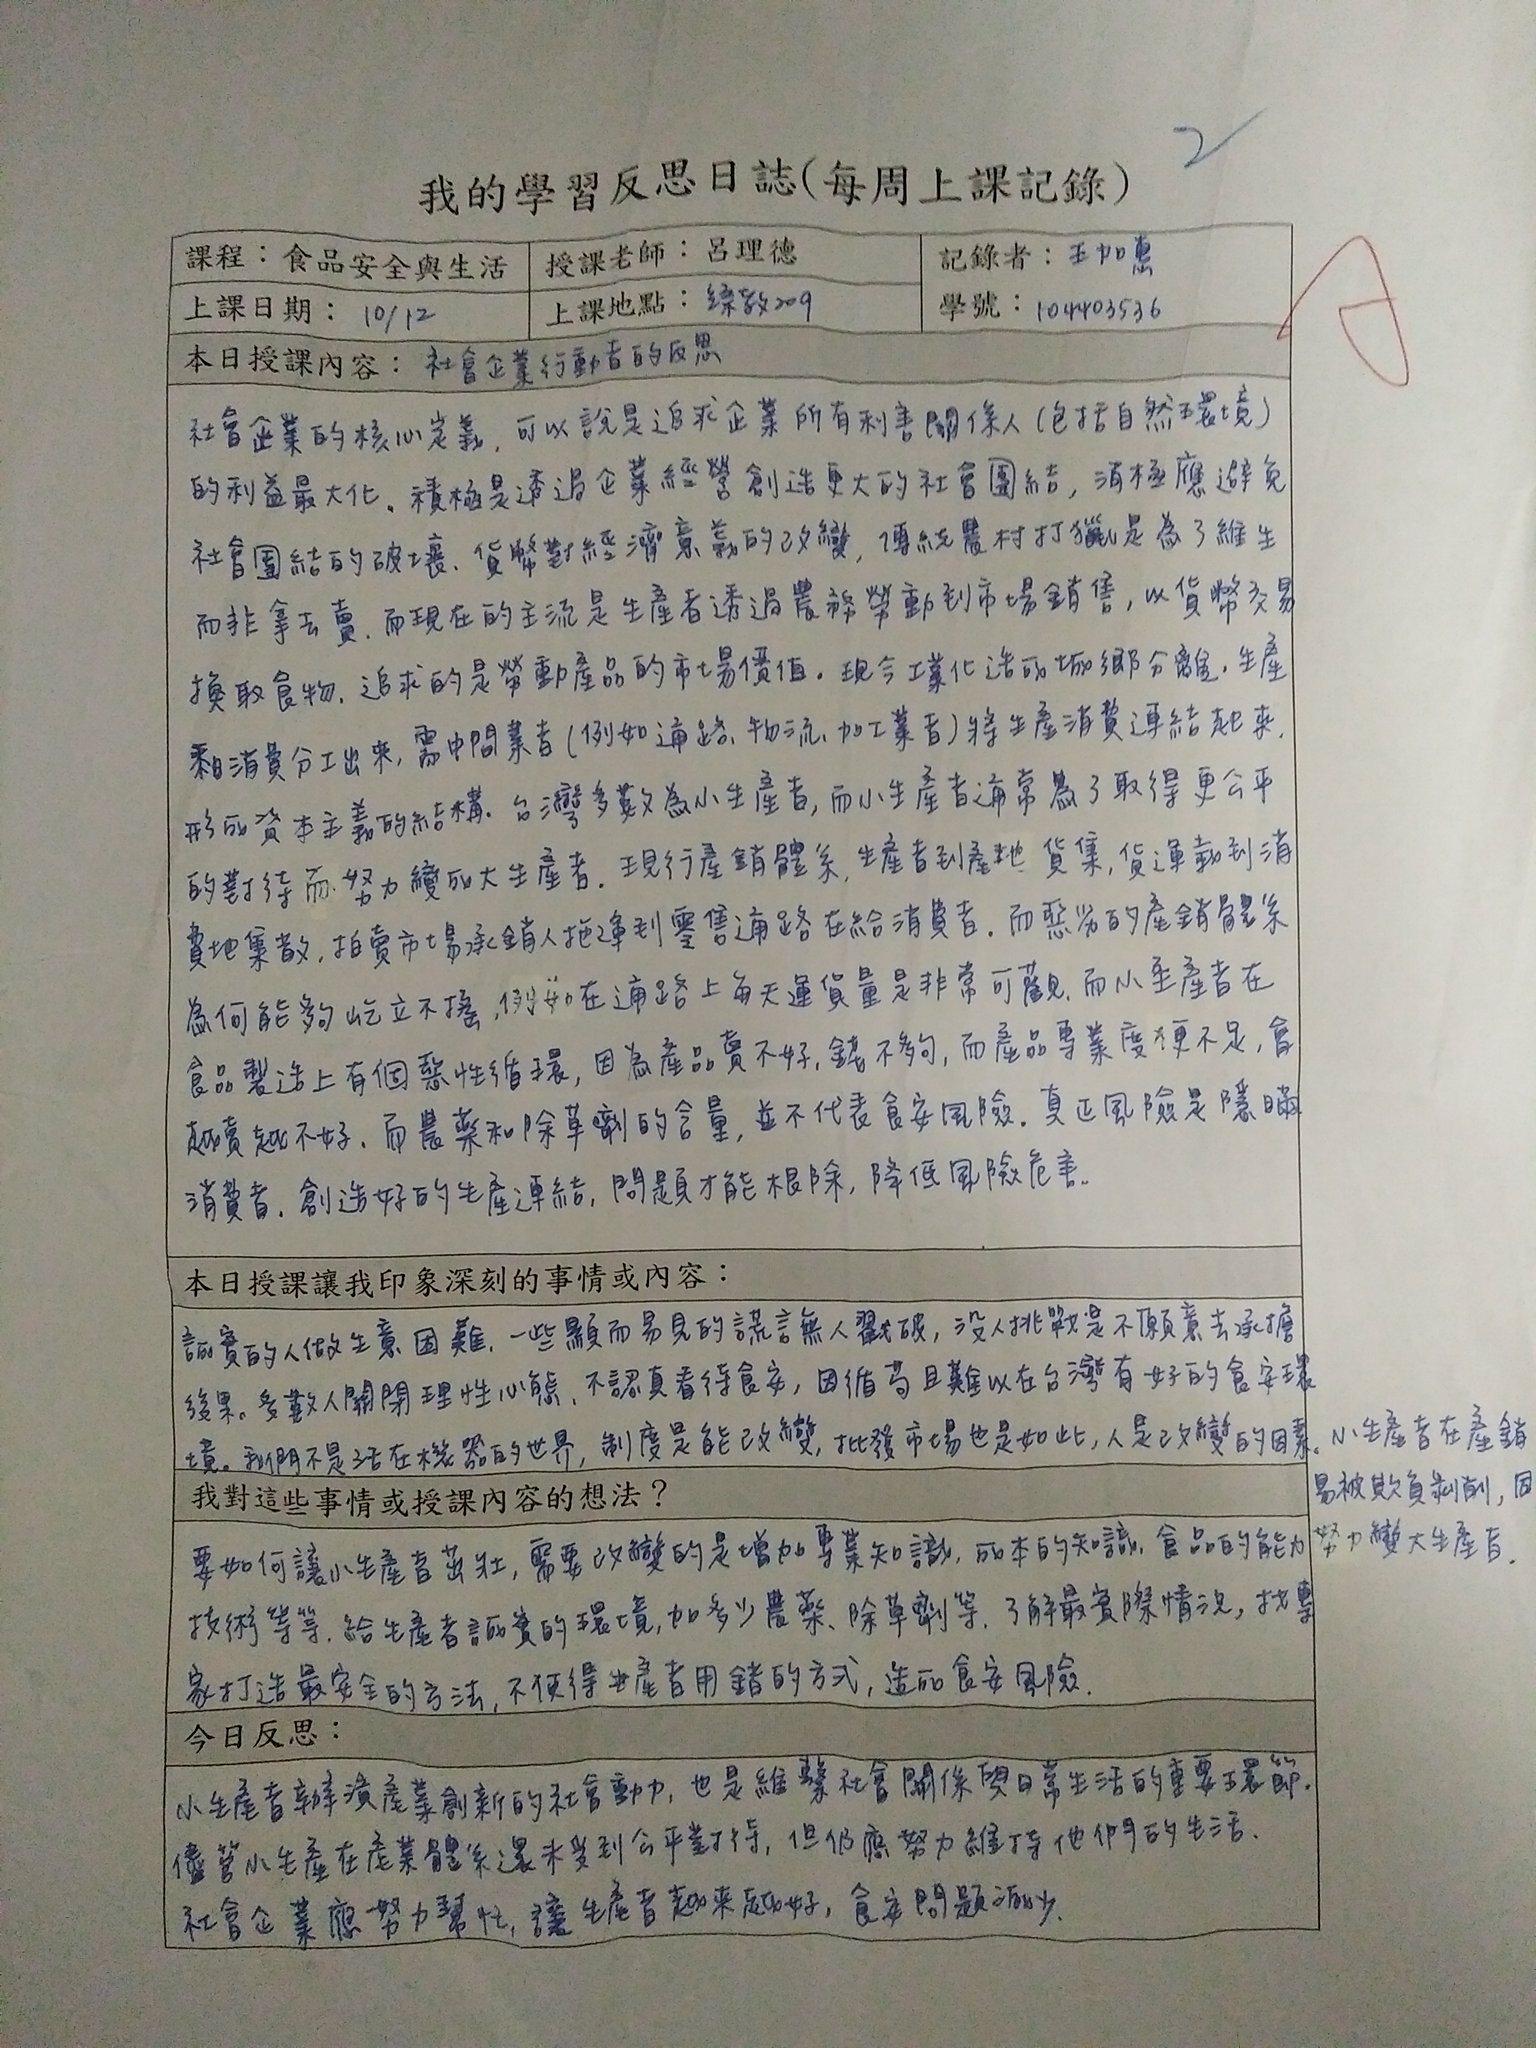 2
我的學習反思日誌(每周上課記錄)
A
課程：食品安全與生活 授課老師：呂理德 記錄者：王加惠
上課日期：10/12 上課地點：綜教209 學號：104403536
本日授課內容：社會企業行動者的反思
社會企業的核心定義，可以說是追求企業所有利害關係人(包括自然環境)
的利益最大化。積極是透過企業經營創造更大的社會團結，消極應避免
社會團結的破壞．貨幣對經濟意義的改變，傳統農村打獵是為了維生
而非拿去賣．而現在的主流是生產者透過農務勞動到市場銷售，以貨幣交易
換取食物．追求的是勞動產品的市場價值。現今工業化造成城鄉分離．生產
和消費分工出來，需中間業者(例如通路、物流、加工業者)將生產消費連結起來．
形成資本主義的結構．台灣多數為小生產者，而小生產者通常為了取得更公平
的對待而努力變成大生產者．現行產銷體系，生產者到產地 貨集，貨運載到消
費地集散，拍賣市場承銷人拖運到零售通路在給消費者．而惡劣的產銷體系
為何能夠屹立不搖，例如在通路上每天運貨量是非常可觀．而小生產者在
食品製造上有個惡性循環，因為產品賣不好，錢不夠，而產品專業度便不足，會
越賣越不好．而農藥和除草劑的含量，並不代表食安風險．真正風險是隱瞞
消費者．創造好的生產連結，問題才能根除，降低風險危害。
本日授課讓我印象深刻的事情或內容：
誠實的人做生意困難．一些顯而易見的謊言無人戳破，沒人挑戰是不願意去承擔
後果。多數人關閉理性心態．不認真看待食安，因循苟且難以在台灣有好的食安環
境。我們不是活在機器的世界，制度是能改變，批發市場也是如此，人是改變的因素。小生產者在產銷
易被欺負剝削，因
努力變大生產者．
我對這些事情或授課內容的想法？
要如何讓小生產者茁壯，需要改變的是增加專業知識．成本的知識．食品的能力
技術等等．給生產者誠實的環境，加多少農藥、除草劑等．了解最實際情況，找專
家打造最安全的方法，不使得生產者用錯的方式，造成食安風險．
今日反思：
小生產者牽演產業創新的社會動力，也是維繫社會關係與日常生活的重要環節．
儘管小生產在產業體系還未受到公平對待，但仍應努力維持他們的生活．
社會企業應努力幫忙，讓生產者越來越好，食安問題減少．